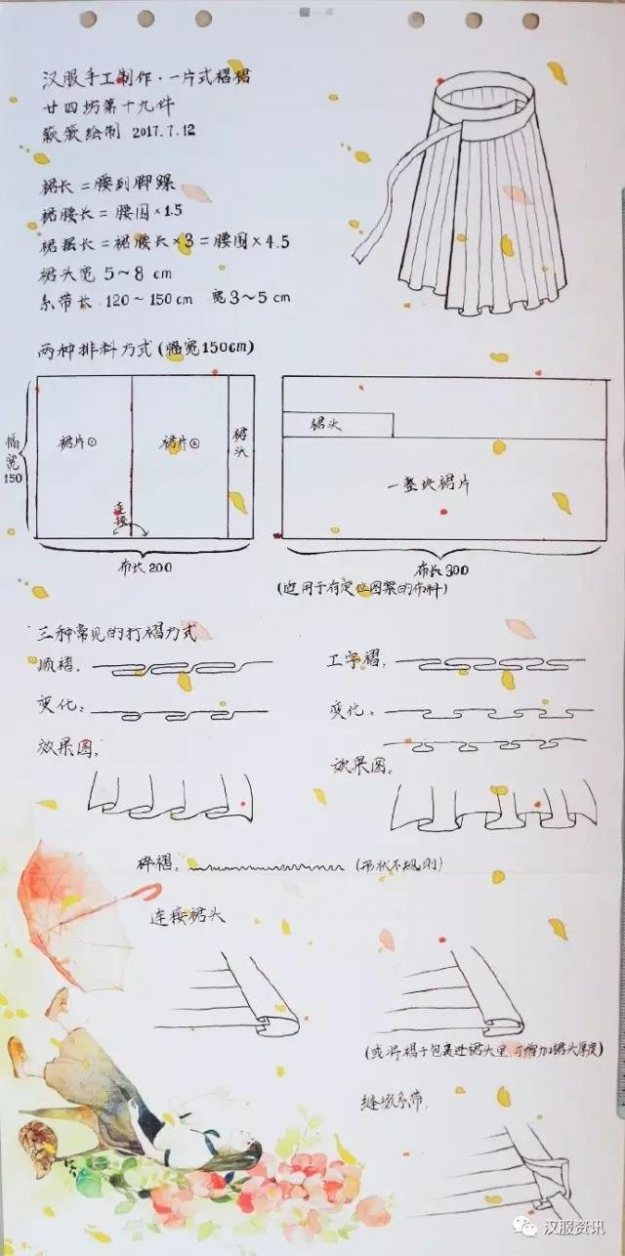 汉服手工制作·一片式褶裙
廿四坊第十九件
蔌蔌绘制 2017.7.12
裙长=腰到脚踝
裙腰长=腰围×1.5
裙摆长=裙腰长×3=腰围×4.5
裙头宽 5~8 cm
系带长 120~150cm 宽3~5cm
两种排料方式(幅宽150cm)
幅宽150
裙片①
裙片②
裙头
连接
布长200
裙头
一整块裙片
布长300
(适用于有定位图案的布料)
三种常见的打褶方式
顺褶:
变化:
效果图:
工字褶:
变化:
效果图:
碎褶: (形状不规则)
连接裙头
(或将褶子包裹进裙头里,可增加裙头厚度)
缝缀系带:
汉服资讯